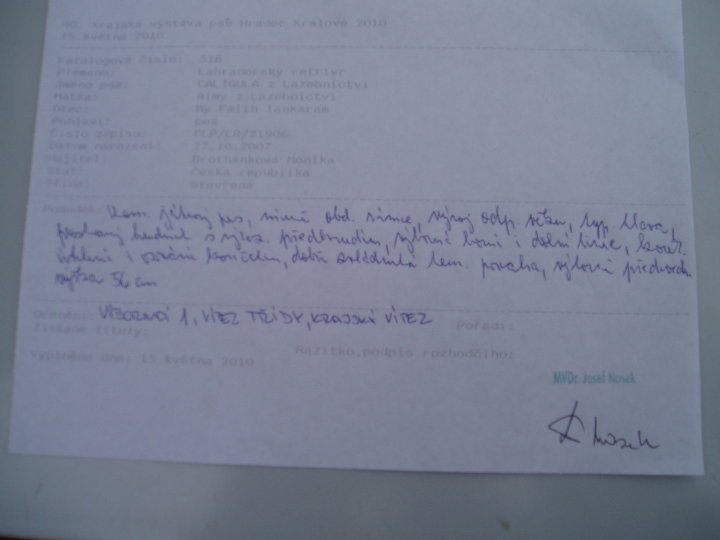 40. krajská výstava psů Hradec Králové 2010
15.května 2010
Katalogové číslo: 316
Plemeno: Labradorský retrívr
Jméno psa: CALIGULA z Lazebnictví
Matka: Almy z Lazebnictví
Otec: My Faith Tankaram
Pohlaví: pes
Číslo zápisu: CLP/LR/21906
Datum narození: 27.10.2007
Majitel: Brothánková Monika
Stát: Česká republika
Třída: otevřená
Posudek: pes, mírně obd. rámce, vývoj odp. věku, typ. hlava,
prostorný hrudník s předhrudím, výborná horní i dolní linie,
i končetin, dobře povaha, výborné předvedení
výška 56 cm
Ocenění: VÝBORNÁ 1, VÍTĚZ TŘÍDY, KRAJSKÝ VÍTĚZ Pořadí:
Získané tituly:
Vyplněno dne: 15.května 2010 Razítko,podpis rozhodčího:
MVDr. Josef Nosek